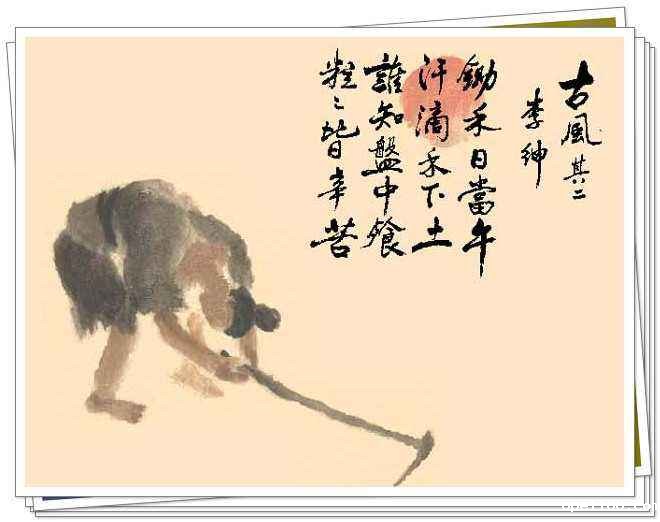 古風其二
李紳
鋤禾日當午
汗滴禾下土
誰知盤中餐
粒〻皆辛苦